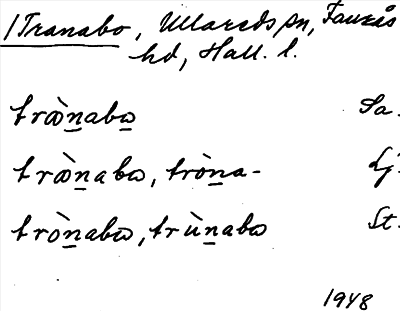 /Tranabo, Ullareds sn, Faurås
hd, Hall. l.
trὼnabω Sa.
trὼnabω, trònа- Lj.
trònabω, trùnabω St.
1948